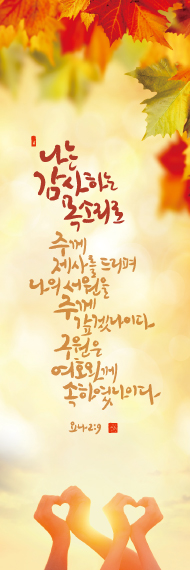 나는
감사하는
목소리로
주께
제사를 드리며
나의 서원을
주께
갚겠나이다.
구원은
여호와께
속하였나이다.
요나 2:9